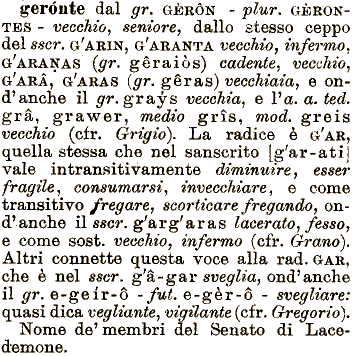 gerónte dal gr. GÈRÔN - plur. GÈRON-
TES - vecchio, seniore, dallo stesso ceppo
del sscr. G'ARIN, G'ARANTA vecchio, infermo,
G'ARAṆAS (gr. gêraiòs) cadente, vecchio,
G'ARÂ, G'ARAS (gr. gêras) vecchiaia, e on-
d'anche il gr. graŷs vecchia, e l'a. a. ted.
grâ, grawer, medio grîs, mod. greis
vecchio (cfr. Grigio). La radice è G'AR,
quella stessa che nel sanscrito [g'ar-ati]
vale intransitivamente diminuire, esser
fragile, consumarsi, invecchiare, e come
transitivo fregare, scorticare fregando, on-
d'anche il sscr. g'arg'aras lacerato, fesso,
e come sost. vecchio, infermo (cfr. Grano).
Altri connette questa voce alla rad. GAR,
che è nel sscr. g'â-gar sveglia, ond'anche
il gr. e-geír-ô - fut. e-gèr-ô - svegliare:
quasi dica vegliante, vigilante (cfr. Gregorio).
Nome de' membri del Senato di Lace-
demone.